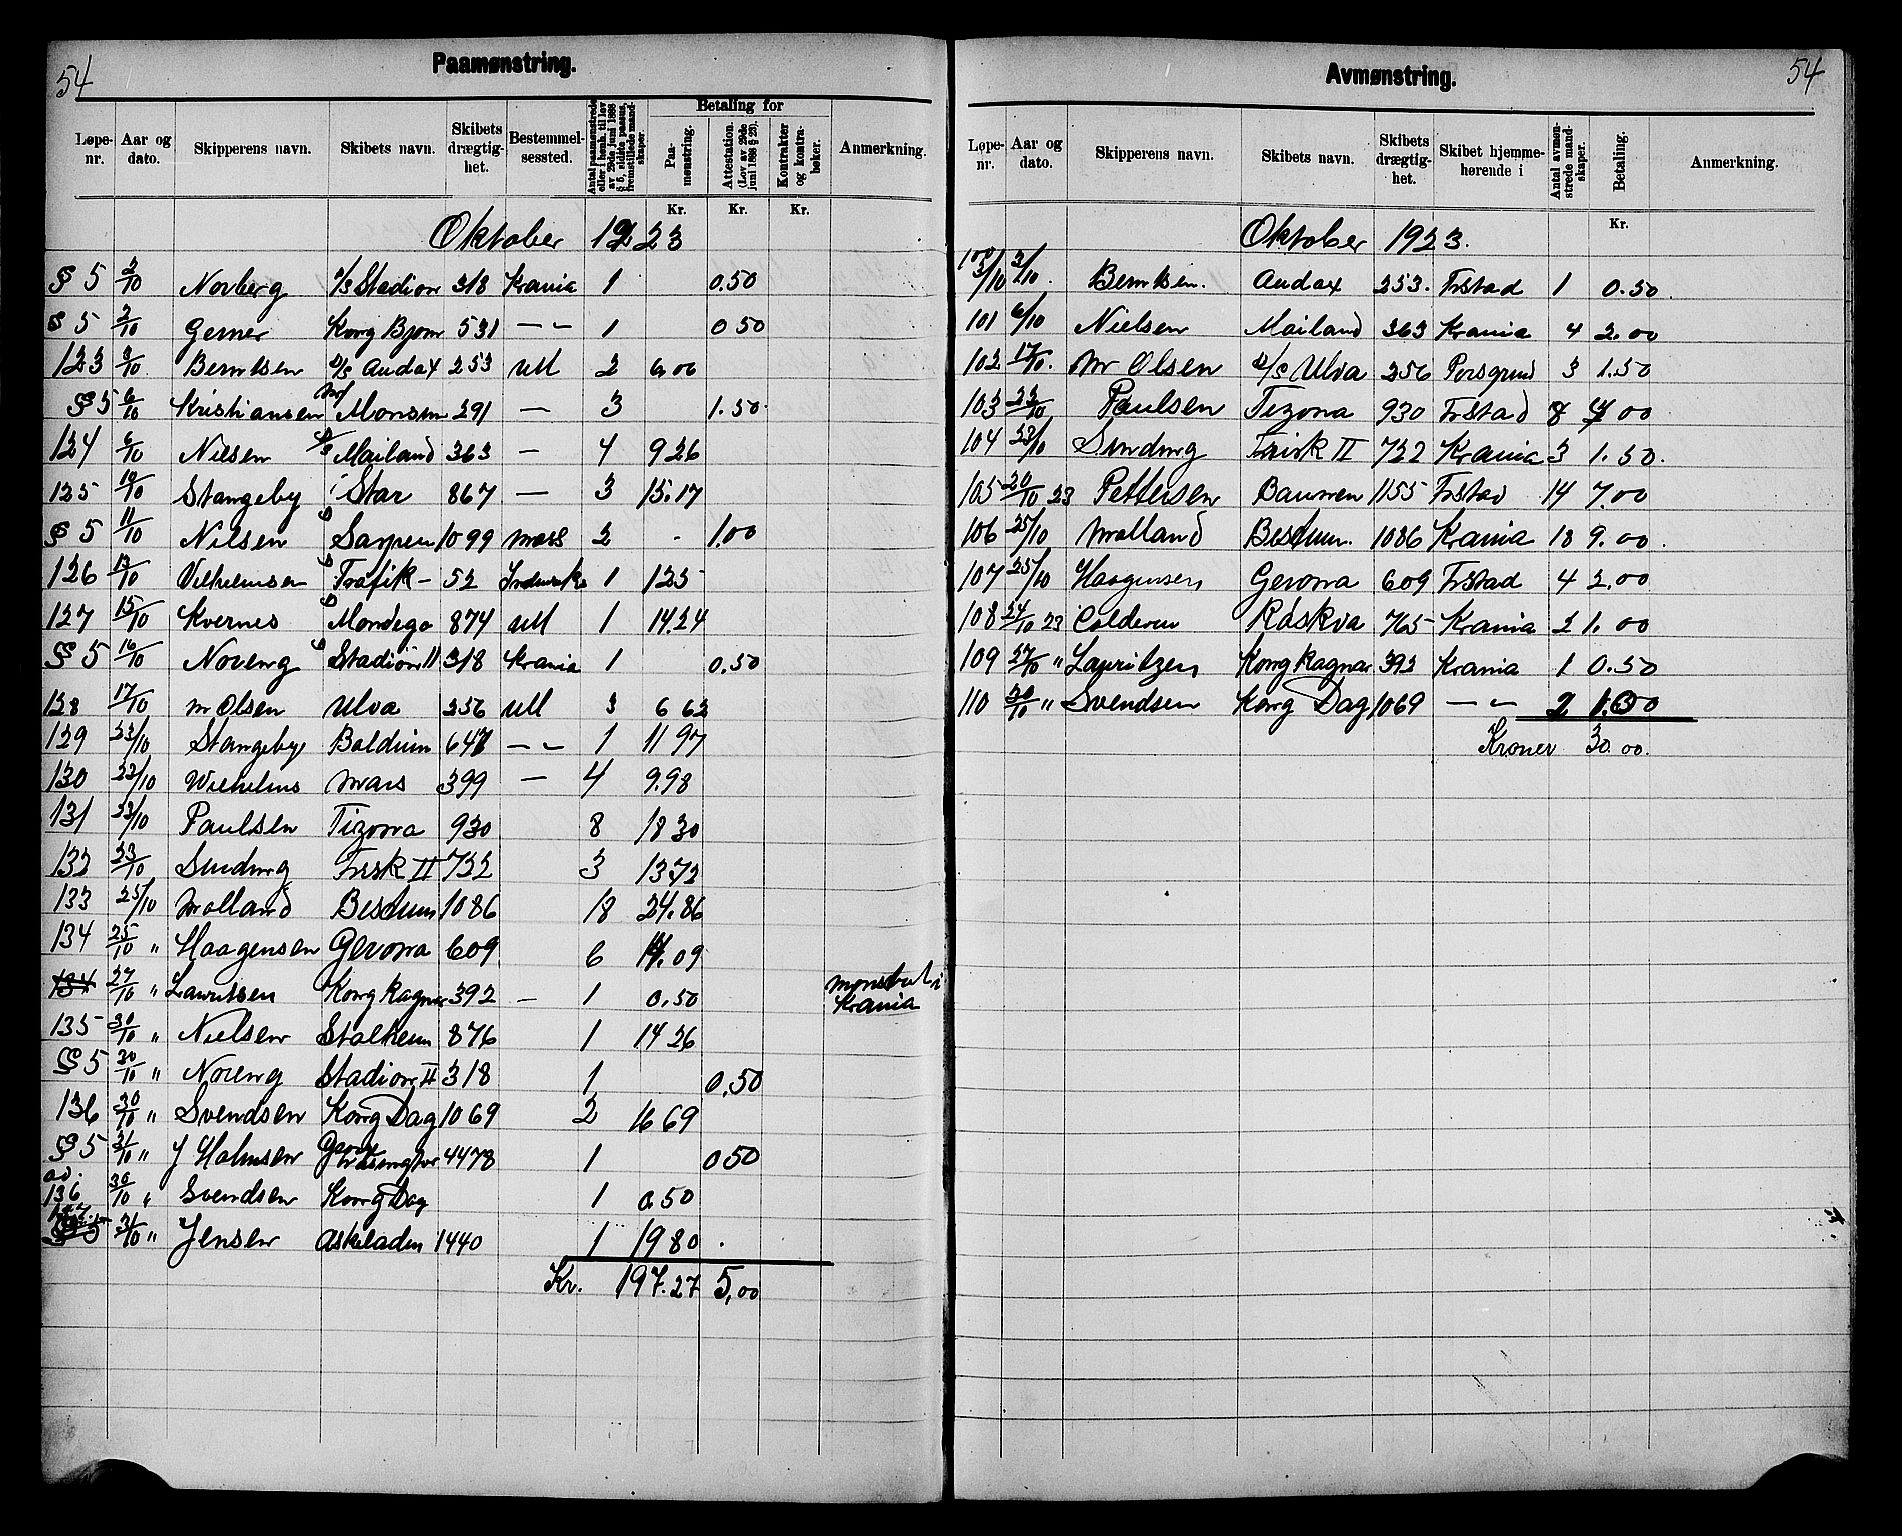 54
Paamønstring.
Løpe-nr. Aar og dato. Skipperens navn. Skibets navn. Skibets drægtighet. Bestemmelsessted. Antal paamønstrede eller i henh. til lov av 29de juni 1888 § 5, sidste passus, fremstillede mandskaper. Betaling for Paamønstring. Attestation. (Lov av 29de juni 1888 § 23). Kontrakter og kontrabøker. Anmerkning.
Kr. Kr. Kr.
Oktober 1923
§ 5 2/10 Norberg D/S Stadion 318 Krania 1 0.50
§ 5 2/10 Gerner Kong Bjørn 531 — 1 0 50
123 3/10 Berntsen D/S Audax 253 Utl 2 6.00
§ 5 6/10 Kristiansen M/f Monsun 291 — 3 1.50
124 6/10 Nilsen D/S Mailand 363 — 4 9 26
125 10/10 Stangeby Star 867 — 3 15.17
§ 5 11/10 Nilsen Sarpen 1099 Moss 2 1.00
126 13/10 Vilhelmsen Trafik 52 1 125
127 15/10 Kvernes Mondego 874 Utl 1 14.24
§ 5 16/10 Noreng Stadion II 318 Krania 1 0.50
128 17/10 M Olsen Ulva 256 Utl 3 6 62
129 23/10 Stangeby Balduin 647 — 1 11 97
130 23/10 Wilhelms Mars 399 — 4 9.98
131 23/10 Paulsen Tizona 930 8 18 30
132 23/10 Sinding Frisk II 722 3 13.72
133 25/10 Molland Bestum 1086 18 24.86
134 25/10 " Haagensen Gerona 609 6 14.09
134 27/10 " Lauritsen Kong Ragnar 392 — 1 0.50 Mønstret i Krania
135 30/10 " Nielsen Stalheim 876 1 14 26
§ 5 30/10 " Noreng Stadion II 318 1 0.50
136 30/10 " Svendsen Kong Dag 1069 2 16 69
§ 5 31/10 " J Holmsen George Washington 4478 1 0 50
ad. 136 30/10 " Svendsen Kong Dag 1 0.50
137 31/10 " Jensen Askeladen 1440 1 19 80
Kr. 197.27 5,00
54
Avmønstring.
Løpe-nr. Aar og dato. Skipperens navn. Skibets navn. Skibets drægtighet. Skibet hjemmehørende i Antal avmønstrede mandskaper. Betaling. Anmerkning.
Kr.
Oktober 1923.
100 3/10 3/10 Berntsen. Audax 253. Frstad 1 0.50
101 6/10 Nielsen Mailand 363 Krania 4 2.00
102 17/10. M Olsen D/S Ulva 256 Porsgrund 3 1.50
103 23/10 Paulsen Tizona 930 Frstad 8 4 00
104 23/10 Sinding Frisk II 722 Krania 3 1.50.
105 20/10 23 Pettersen Baunen 1155 Frstad 14 7.00
106 25/10 Molland Bestum. 1086 Krania 18 9.00
107 25/10 Haagensen Gerona 609 Frstad 4 2.00
108 24/10 23 Calderin Råskva 765 Krania 2 1.00
109 27/10 " Lauritzen Kong Ragnar 392 Krania 1 0.50
110 30/10 " Svendsen Kong Dag 1069 — 2 1.00
Kroner 30.00.